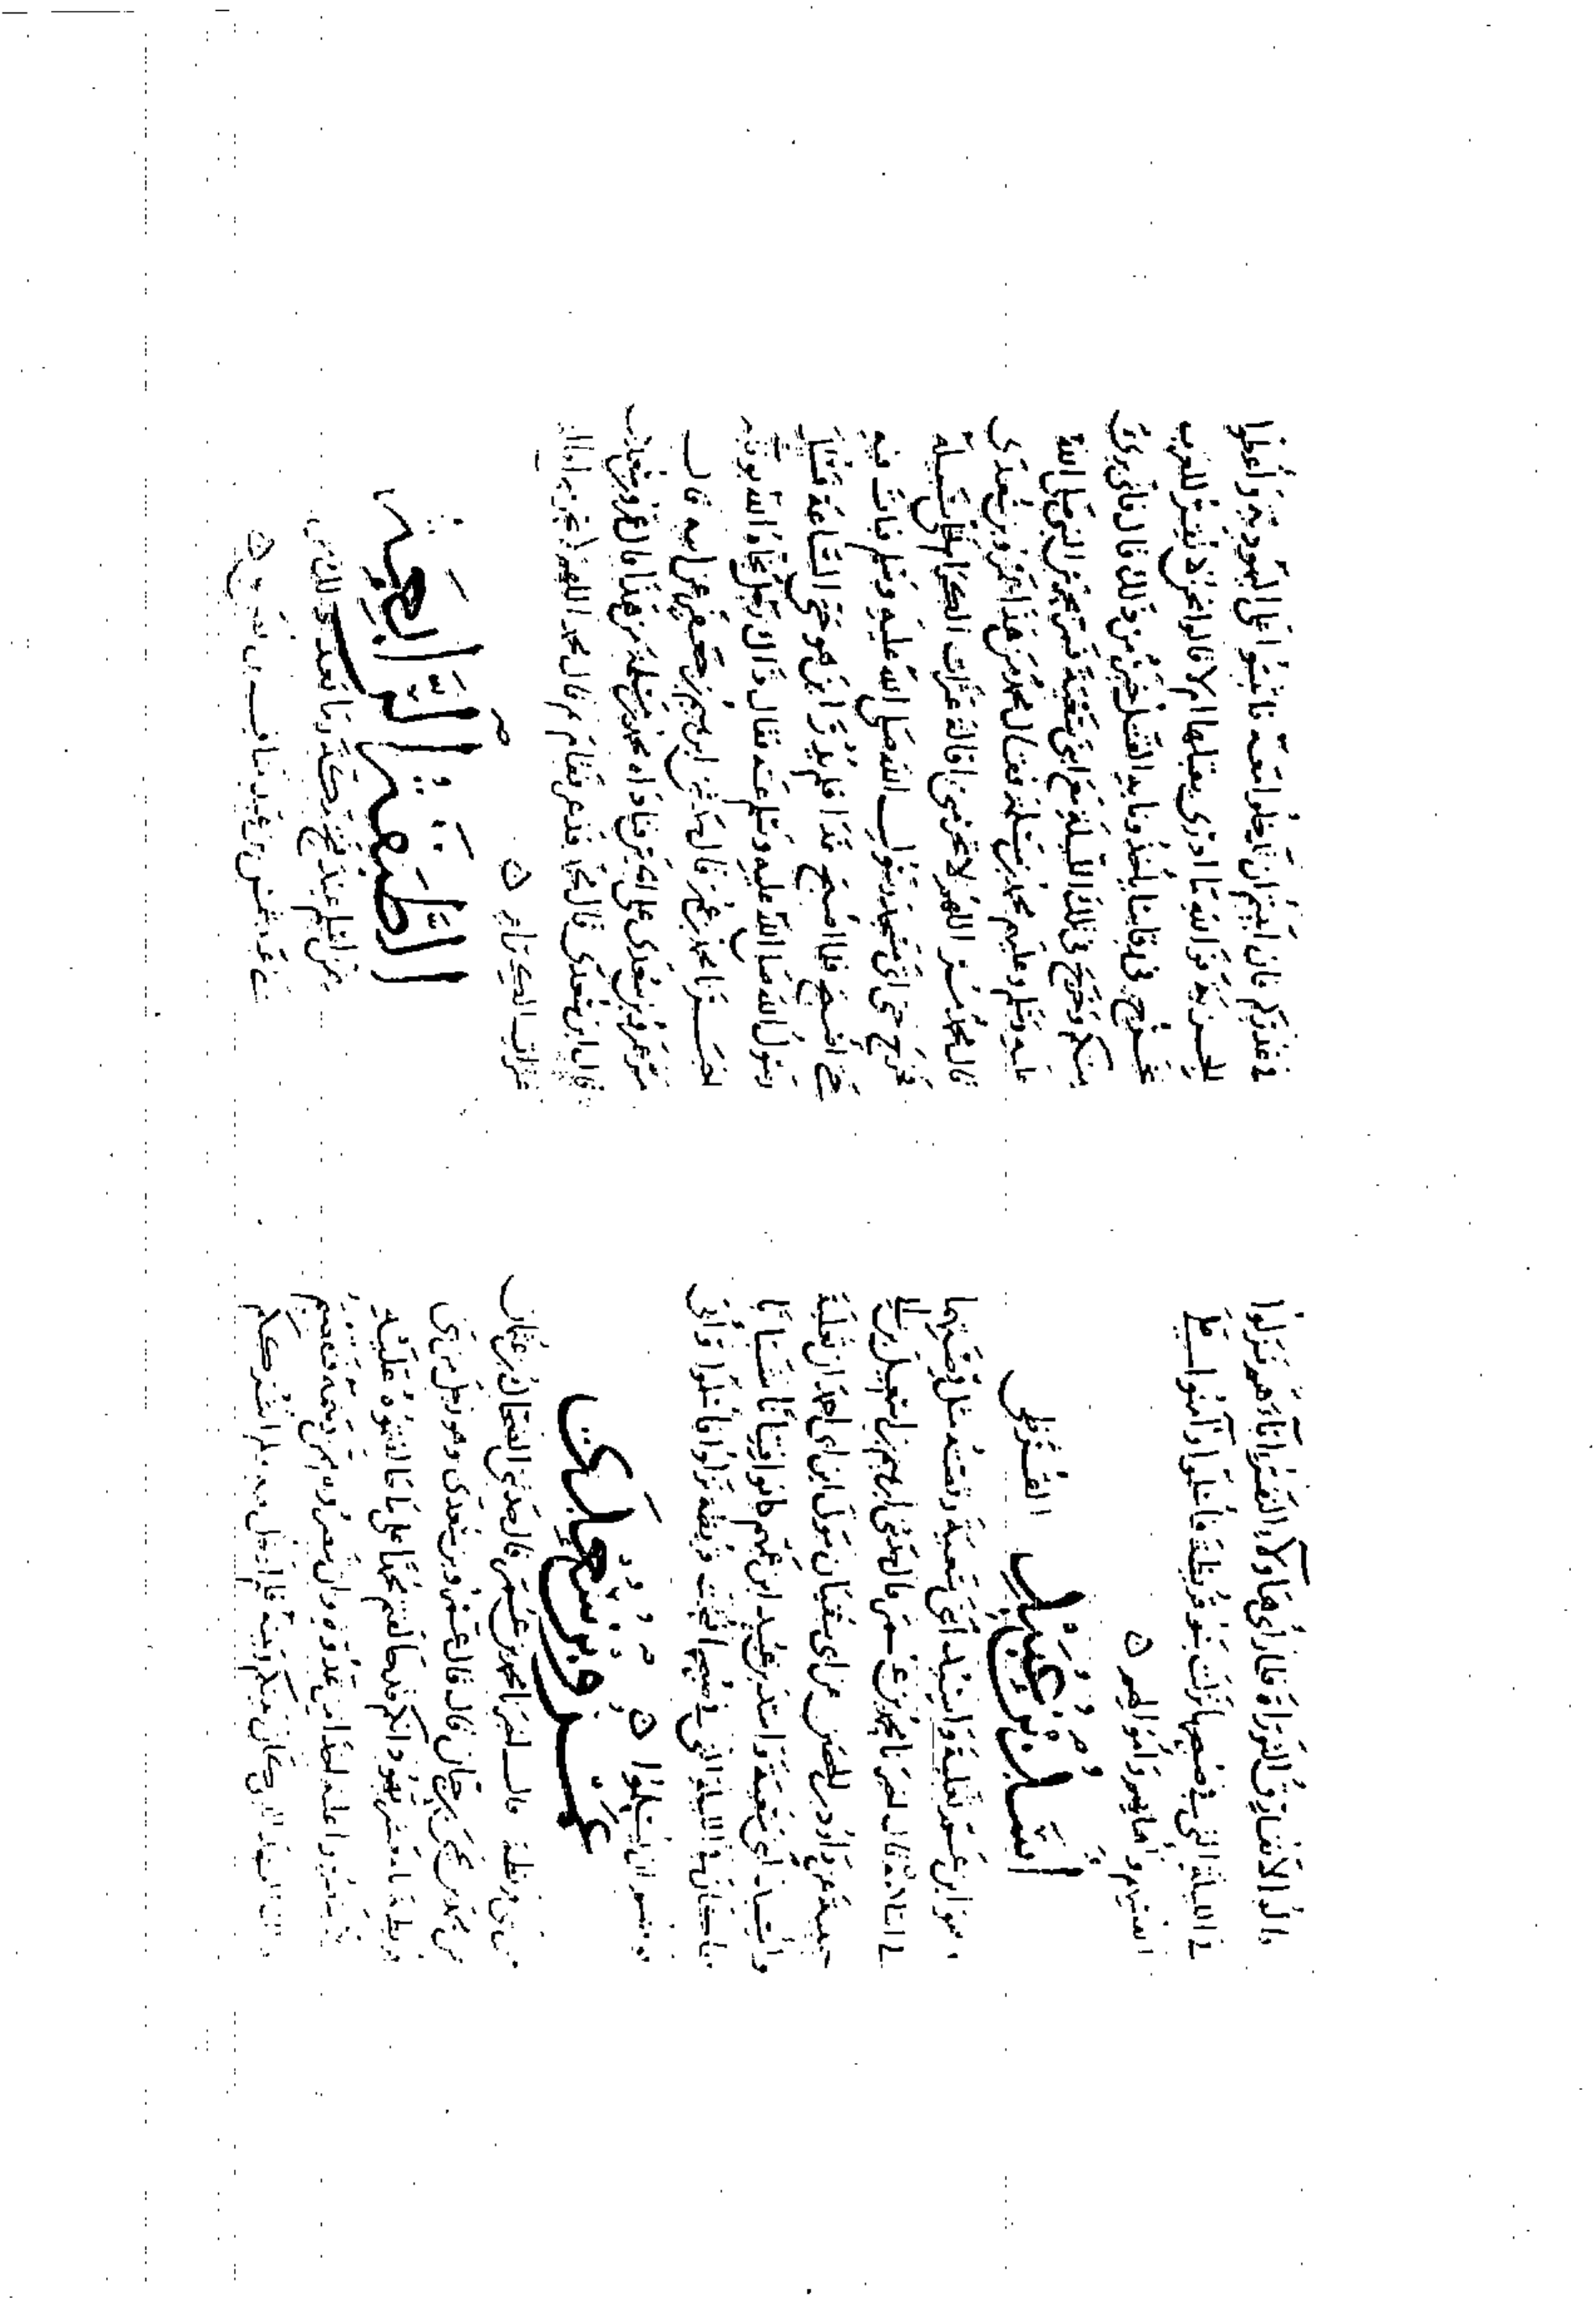 والدا الاخيار في التوراة فلما رأى هاولاء النفر اباءهم نزلوا
في الليلة التي في صبيحتها نزلت بنو قريظة فاسلموا وآمنوا على
انفسهم واهاليهم واموالهم ه
اسد بن عبيد القرظي
هو ابن عم ثعلبة واسيد ابني سعية وقصته مثل قصتهما
قال اخبرنا محمد بن عمر قال حدثني ابرهيم بن اسمعيل بن ابي
حبيبة عن داود بن الحصين عن ابي سفيان مولى ابن ابي احمد ان ثعلبة
واسيد ابني سعية واسد بن عبيد ابن عمهم كانوا فتيانا شبابا
فلما كان في الليلة التي في صبحها قريظة نزلوا فاسلموا وابى
قومهم ان يسلموا ه
عمرو بن سعدى
من بني قريظة قال اخبرنا محمد بن عمر قال حدثني الضحاك بن عثمان
عن محمد بن يحيى بن حبان قال قال عمرو بن سعدى وهو رجل من بني
قريظة يا معشر يهود انكم قد حالفتم محمدا على ما حالفتموه عليه
عليه احدا من عدوه وان تنصروه ممن دهمه فنقضتم
الذي كان بينكم وبينه فلم ادخل فيه ولم اشرككم
في غدركم فان ابيتم ان تدخلوا معه فاثبتوا على اليهودية واعطوا
الجزية فوالله ما ادري يقبلها ام لا قالوا نحن لا نقر للعرب
بخرج في رقابنا ياخذونا به القتل خير من ذلك قال فاني بري
منكم وخرج في تلك الليلة مع ابني سعية فمر بحرس النبي صلى الله
عليه وسلم وعليهم محمد بن مسلمة فقال محمد من هذا قال عمرو بن سعدى
قال محمد مر اللهم لا تحرمني اقالة عثرات الكرام فخلى سبيله
فخرج حتى اتى مسجد رسول الله صلى الله عليه وسلم فبات فيه
حتى اصبح فلما اصبح غدا فلم يدر اين هو حتى الساعة فسئل
رسول الله صلى الله عليه وسلم عنه فقال ذاك رجل نجاه الله بوفائه
اخبرنا محمد بن عمر قال حدثني ابرهيم بن جعفر عن ابيه قال
مر عمرو بن سعدى على الحرس فناداه محمد بن مسلمة من هذا قال عمرو بن سعدى
قال ابن سعدى قال محمد قد عرفناك ثم قال محمد اللهم لا تحرمني اقالة
عثرات الكرام ه
الطبقة الرابعة
ممن اسلم عند فتح مكة وما بعد ذلك
بن عبد شمس بن عبد مناف ه